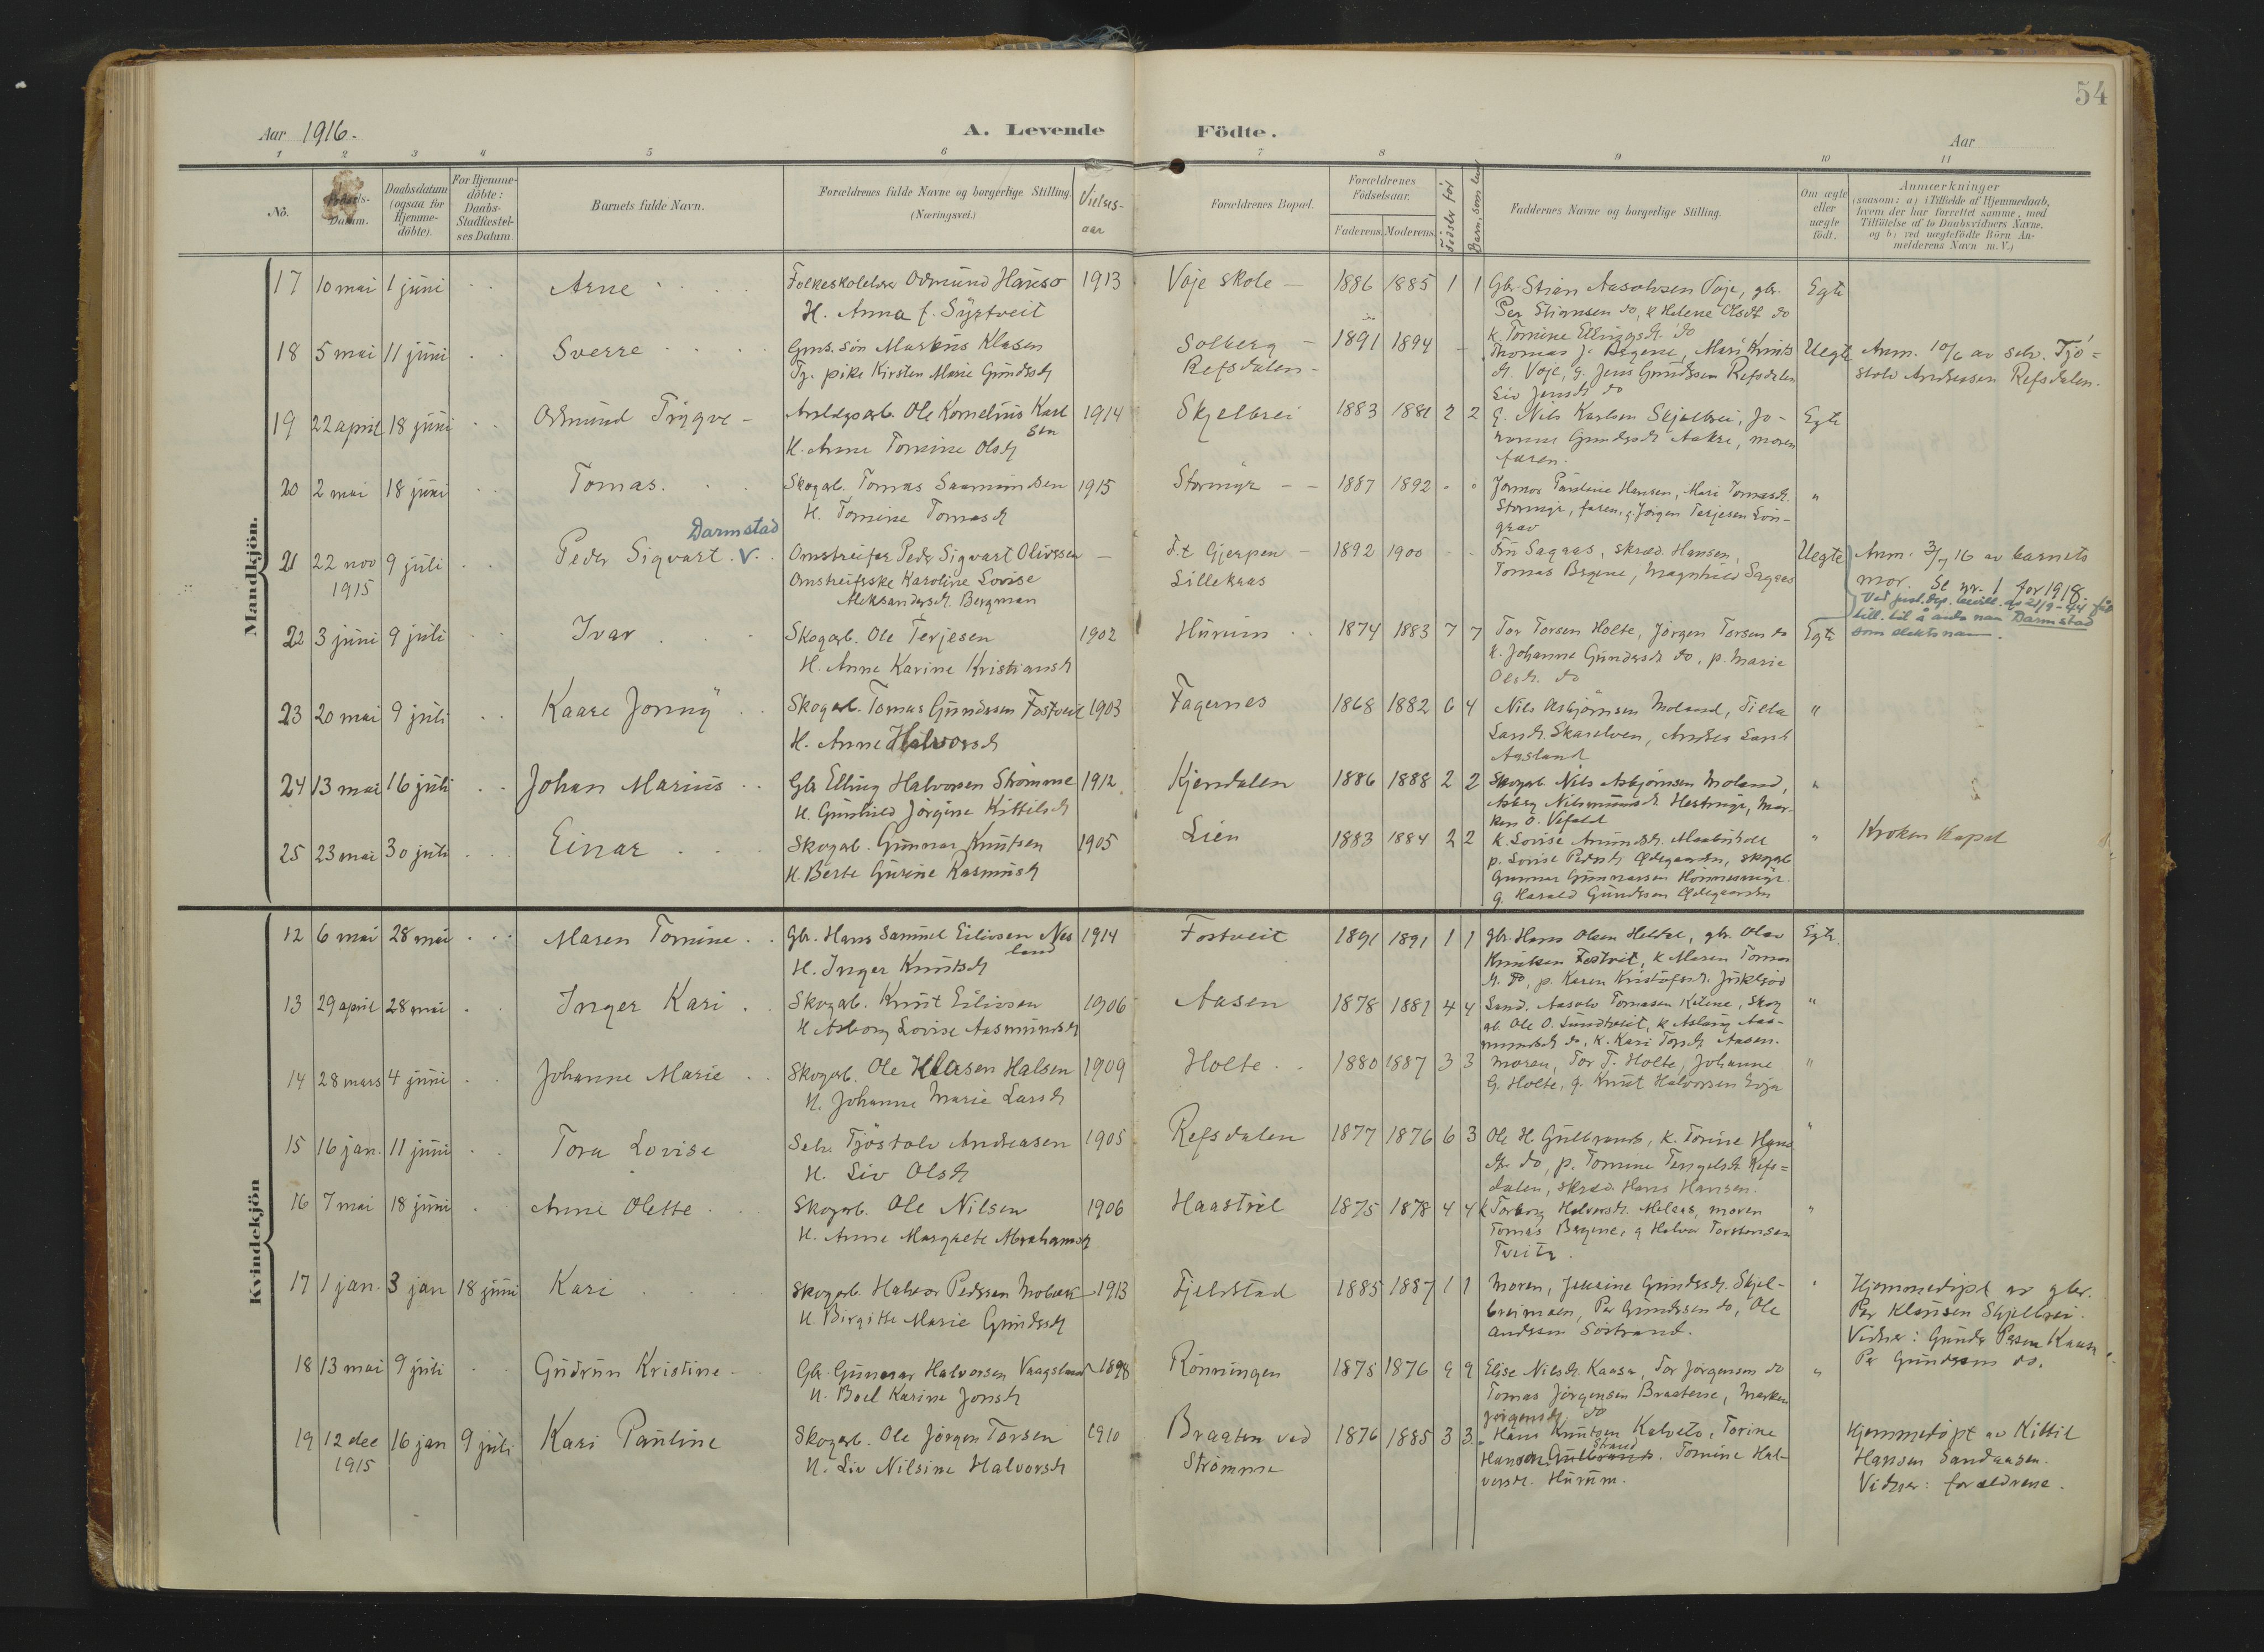 54
Aar 1916.
A. Levende Födte.
Aar
1 2 3 4 5 6 7 8 9 10 11
No.
Födsels-Datum.
Daabsdatum (ogsaa for Hjemme-döbte).
For Hjemme-döbte: Daabs-Stadfæstel-ses Datum.
Barnets fulde Navn.
Forældrenes fulde Navne og borgerlige Stilling. (Næringsvei.)
Vielses-aar
Forældrenes Bopæl.
Forældrenes Födselsaar.
Faderens. Moderens.
Födsler för
Barn, som lever
Faddernes Navne og borgerlige Stilling.
Om ægte eller uægte födt.
Anmærkninger
(saasom: a) i Tilfælde af Hjemmedaab,
hvem der har forrettet samme, med
Tilföielse af to Daabsvidners Navne,
og b) ved uægtefödte Börn An-
melderens Navn m. V.)
Mandkjön.
17 10 mai 1 juni Arne
Folkeskolelærer Odmund Hansø 1913
H. Anna f. Syrtveit
Voje skole 1886 1885 1 1
Gbr. Stian Aasolvsen Voje, gbr.
Per Stiansen do, k Helene Olsdt do
k. Tomine Ellingsd. do
Egte
18 5 mai 11 juni Sverre
Gms. søn Markus Klasen
Tj. pike Kirsten Marie Gundersd
Solberg
Refsdalen
1891 1894
Thomas J. Bygene, Mari Knuts
d. Voje, g. Jens Gundersen Refsdalen
Liv Jensd do
Uegte
Anm. 10/6 av selv. Tjö=
stolv Andreasen Refsdalen.
19 22 april 18 juni Odmund Trygve
Anlægsarb. Ole Kornelius Karl
sen
1914
H. Anne Tomine Olsd
Skjelbrei 1883 1881 2 2
G. Nils Karlsen Skjelbrei, Jo-
hanne Gundersd Aakre, moren
faren.
Egte
20 2 mai 18 juni Tomas
Skogarb. Tomas Saamundsen 1915
H. Tomine Tomasd
Stormyr 1887 1892
Jormor Pauline Hansen, Mari Tomasd.
Stormyr, faren, g. Jörgen Terjesen Lön-
grav
"
Darmstad
21 22 nov 1915 9 juli Peder Sigvart V.
Omstreifer Peder Sigvart Oliversen
Omstreiferske Karoline Lovise
Aleksandersd. Bergman
F.t Gjerpen
Lillekaas
1892 1900
Fru Sagaas, skræd. Hansen,
Tomas Bygene, Magnhild Sagaas
Uegte
Anm. 3/7 16 av barnets
mor. Se nr. 1 for 1918.
Ved just.dep. bevill. av 21/9-44 får
till. til å anta navn Darmstad
som slektsnavn.
22 3 juni 9 juli Ivar
Skogarb. Ole Terjesen 1902
H. Anne Karine Kristiansd
Hurum 1874 1883 7 7
Tor Torsen Holte, Jörgen Torsen do
k. Johanne Gundersd do, p. Marie
Olsd. do
Egte
23 20 mai 9 juli Kaare Jonny
Skogarb. Tomas Gundersen Fostveit 1903
H. Anne Halvorsd
Fagernes 1868 1882 6 4
Nils Asbjörnsen Moland, Tilla
Larsd. Skarelven, Andrea Larsd
Aasland
"
24 13 mai 16 juli Johan Marius
Gbr Elling Halvorsen Strömme 1912
H. Gunhild Jörgine Kittilsd
Kjendalen 1886 1888 2 2
Skogarb. Nils Asbjörnsen Moland,
Asborg Nilsmunsd. Hestmyr, Mar-
ken O. Vefald
"
25 23 mai 30 juli Einar
Skogarb. Gunnar Knutsen 1905
H. Berte Gurine Rasmusd
Lien 1883 1884 2 2
k. Lovise Amundsd.
p. Lovise Pedersd. Ødegaarden, skogarb
Gunnar Gunnarsen Hommesmyr.
g. Harald Gundersen Ødegaarden
"
Kroken Kapel
Kvindekjön
12 6 mai 28 mai Maren Tomine
Gbr. Hans Samuel Eilivsen Nes
land
1914
H. Inger Knutsd
Fostveit 1891 1891 1 1
Gbr. Hans Olsen Heldal, gbr. Olav
Knutsen Fostveit, k Maren Tomas
d. do, p. Karen Kristofersd. Juklaröd
Egte
13 29 april 28 mai Inger Kari
Skogarb. Knut Eilivsen 1906
H Asborg Lovise Aasmundsd
Aasen 1878 1881 4 4
Land. Aasolv Tomasen Kilene, Skog
ab. Ole O. Sundtveit, k Aslaug Aas-
mundsd do, k. Kari Torsd. Aasen.
"
14 28 mars 4 juni Johanne Marie
Skogarb. Ole Klasen Halsen 1909
H. Johanne Marie Larsd
Holte 1880 1887 3 3
Moren, Tor T. Holte, Johanne
G. Holte, g. Knut Halvorsen Evja
"
15 16 jan. 11 juni Tora Lovise
Selv. Tjöstolv Andreasen 1905
H. Liv Olsd
Refsdalen 1877 1876 6 3
Ole H. Gulbrand, k. Torine Hans
dt. do, p. Tomine Tengelsd. Refs=
dalen, skræd. Hans Hansen.
"
16 7 mai 18 juni Anne Olette
Skogarb. Ole Nilsen 1906
H. Anne Margrete Abrahamsd
Haastöl 1875 1878 4 4
k Torborg Halvorsd. Melaas, moren
Tomas Bygene, g Halvor Torstensen
Tveite.
"
17 1 jan. 3 jan 18 juni Kari
Skogarb. Halvor Pedersen Mobæk 1913
H. Birgitte Marie Gundersd
Fjeldstad 1885 1887 1 1
Moren, Jensine Gundersd. Skjel-
breimoen, Per Gundersen do, Ole
Andersen Sörstrand.
"
Hjemmedöpt av gbr.
Per Klausen Skjelbrei.
Vidner: Gunder Persen Kaasa
Per Gundersen do.
18 13 mai 9 juli Gudrun Kristine
Gbr. Gunnar Halvorsen Vaagsland 1898
H. Boel Karine Jonsd
Rönningen 1875 1876 9 9
Elise Nilsd. Kaasa, Tor Jörgensen do
Tomas Jörgensen Braatene, Marken
Jörgensd. do
"
19 12 dec 1915 16 jan 9 juli Kari Pauline
Skogarb. Ole Jörgen Torsen 1910
H. Liv Nilsine Halvorsd
Braaten ved
Strömme
1876 1885 3 3
Hans Knutsen Kalvelv, Torine
Hansd. Gulbrand strand. Tomine Hal-
vorsd. Hurum.
Hjemmedöpt av Kittil
Hansen Sandaasen.
Vidner: forældrene.